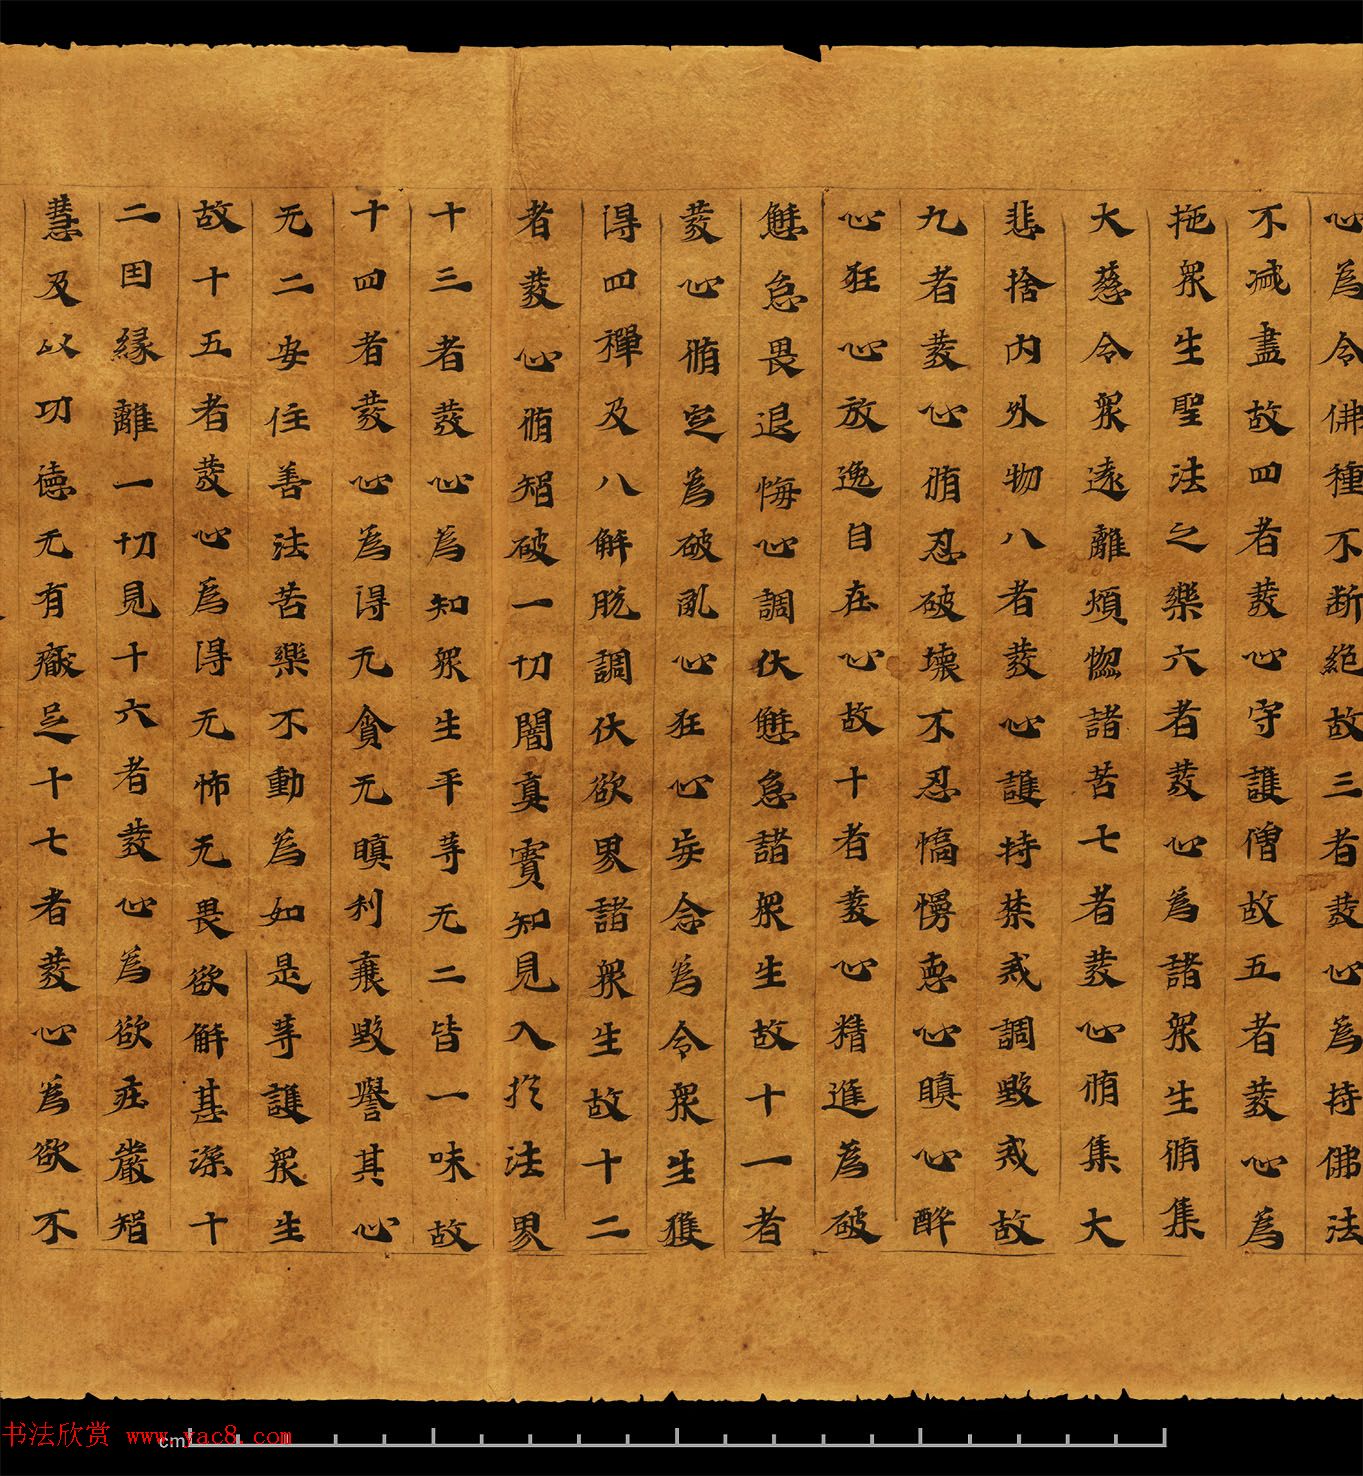 心為令佛種不断絶故三者發心為持佛法
不減盡故四者發心守護僧故五者發心為
拖衆生聖法之樂六者發心為諸衆生脩集
大慈令衆遠離煩惚諸苦七者發心脩集大
悲捨内外物八者發心護持禁戒調毀戒故
九者發心脩忍破壊不忍憍慢恚心瞋心醉
心狂心放逸自在心故十者發心精進為破
懈怠畏退悔心調伏懈怠諸衆生故十一者
發心脩定為破亂心狂心妄念為令衆生獲
得四禪及八解脫調伏欲界諸衆生故十二
者發心脩智破一切闇真實知見入於法界
十三者發心為知衆生平等无二皆一味故
十四者發心為得无貪无瞋利衰毀譽其心
无二安住善法苦樂不動為如是等護衆生
故十五者發心為得无怖无畏欲解甚深十
二因縁離一切見十六者發心為欲莊嚴智
慧及以功德无有厭足十七者發心為欲不
书法欣赏 www.yac8.com
cm